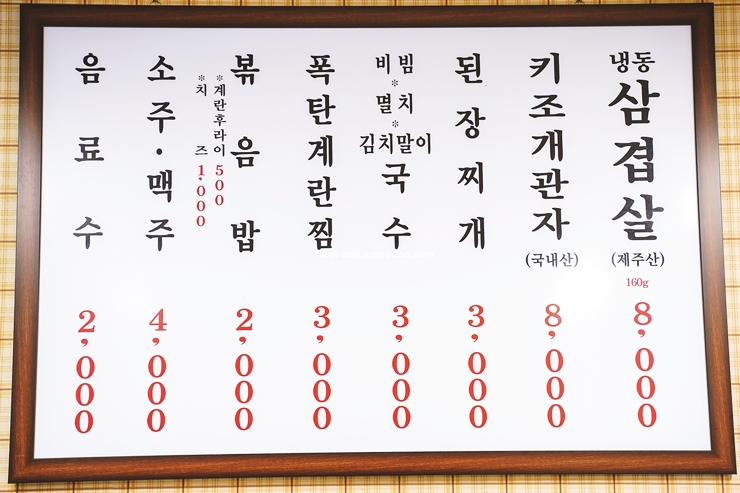 냉동
삼겹살
(제주산)
160g
8,000
키조개관자
(국내산)
8,000
된장찌개
3,000
비빔
*
멸치
*
김치말이
국수
3,000
폭탄계란찜
3,000
볶음밥
*계란후라이 500
*치즈 1,000
2,000
소주·맥주
4,000
음료수
2,000